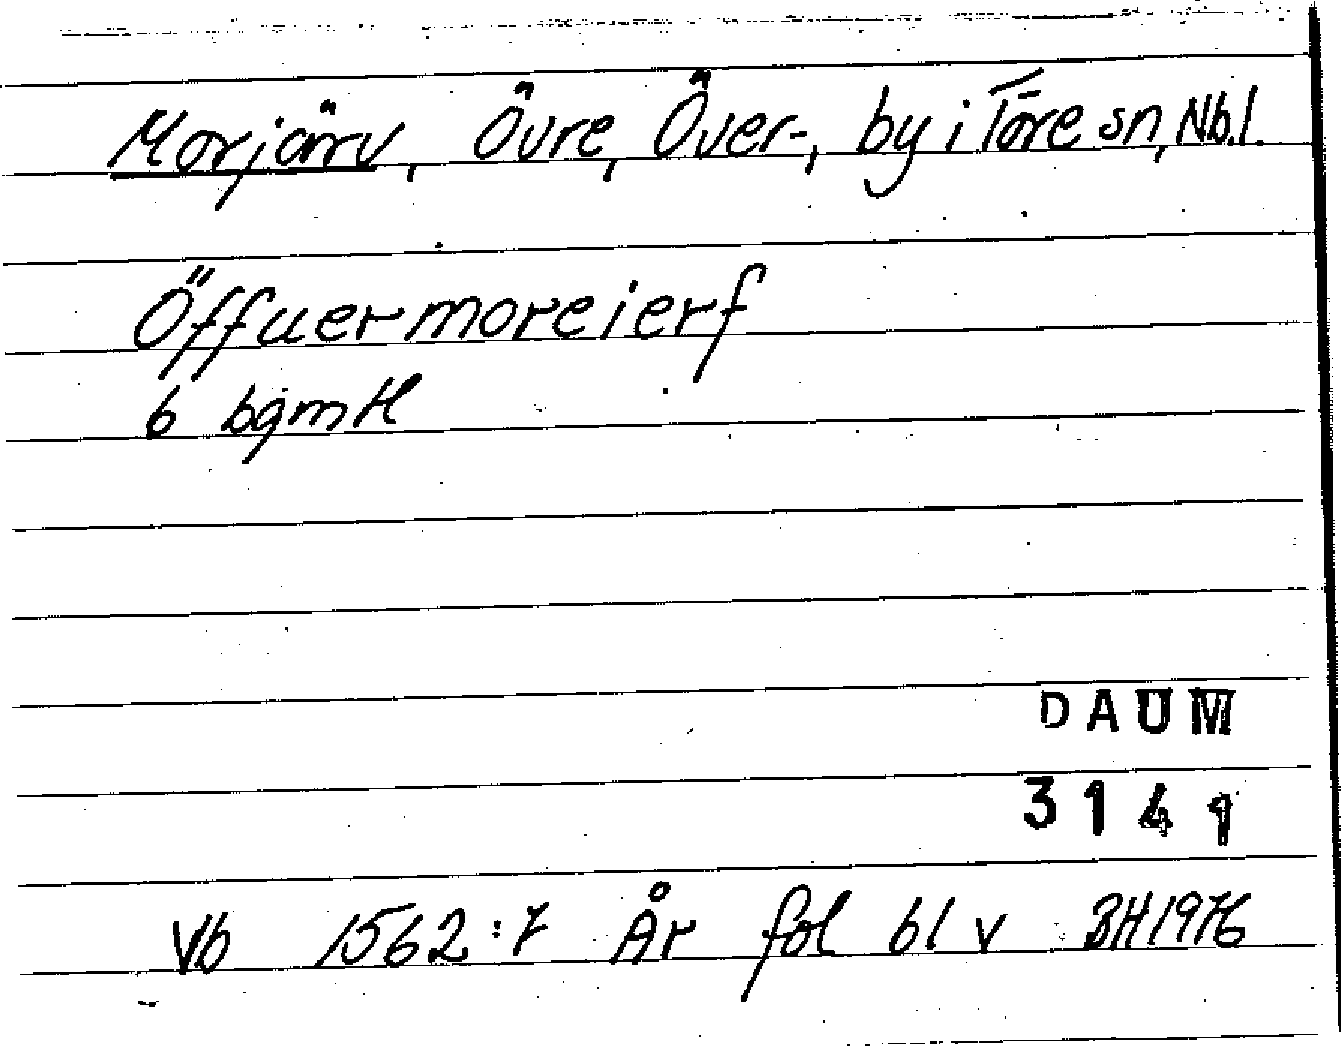 Morjärv, Övre, Över-, by i Töre sn, Nb.l.
Öffuermoreierf
6 bgmtl
DAUM
3141
Vb 1562:7 År fol 61 v BH1976